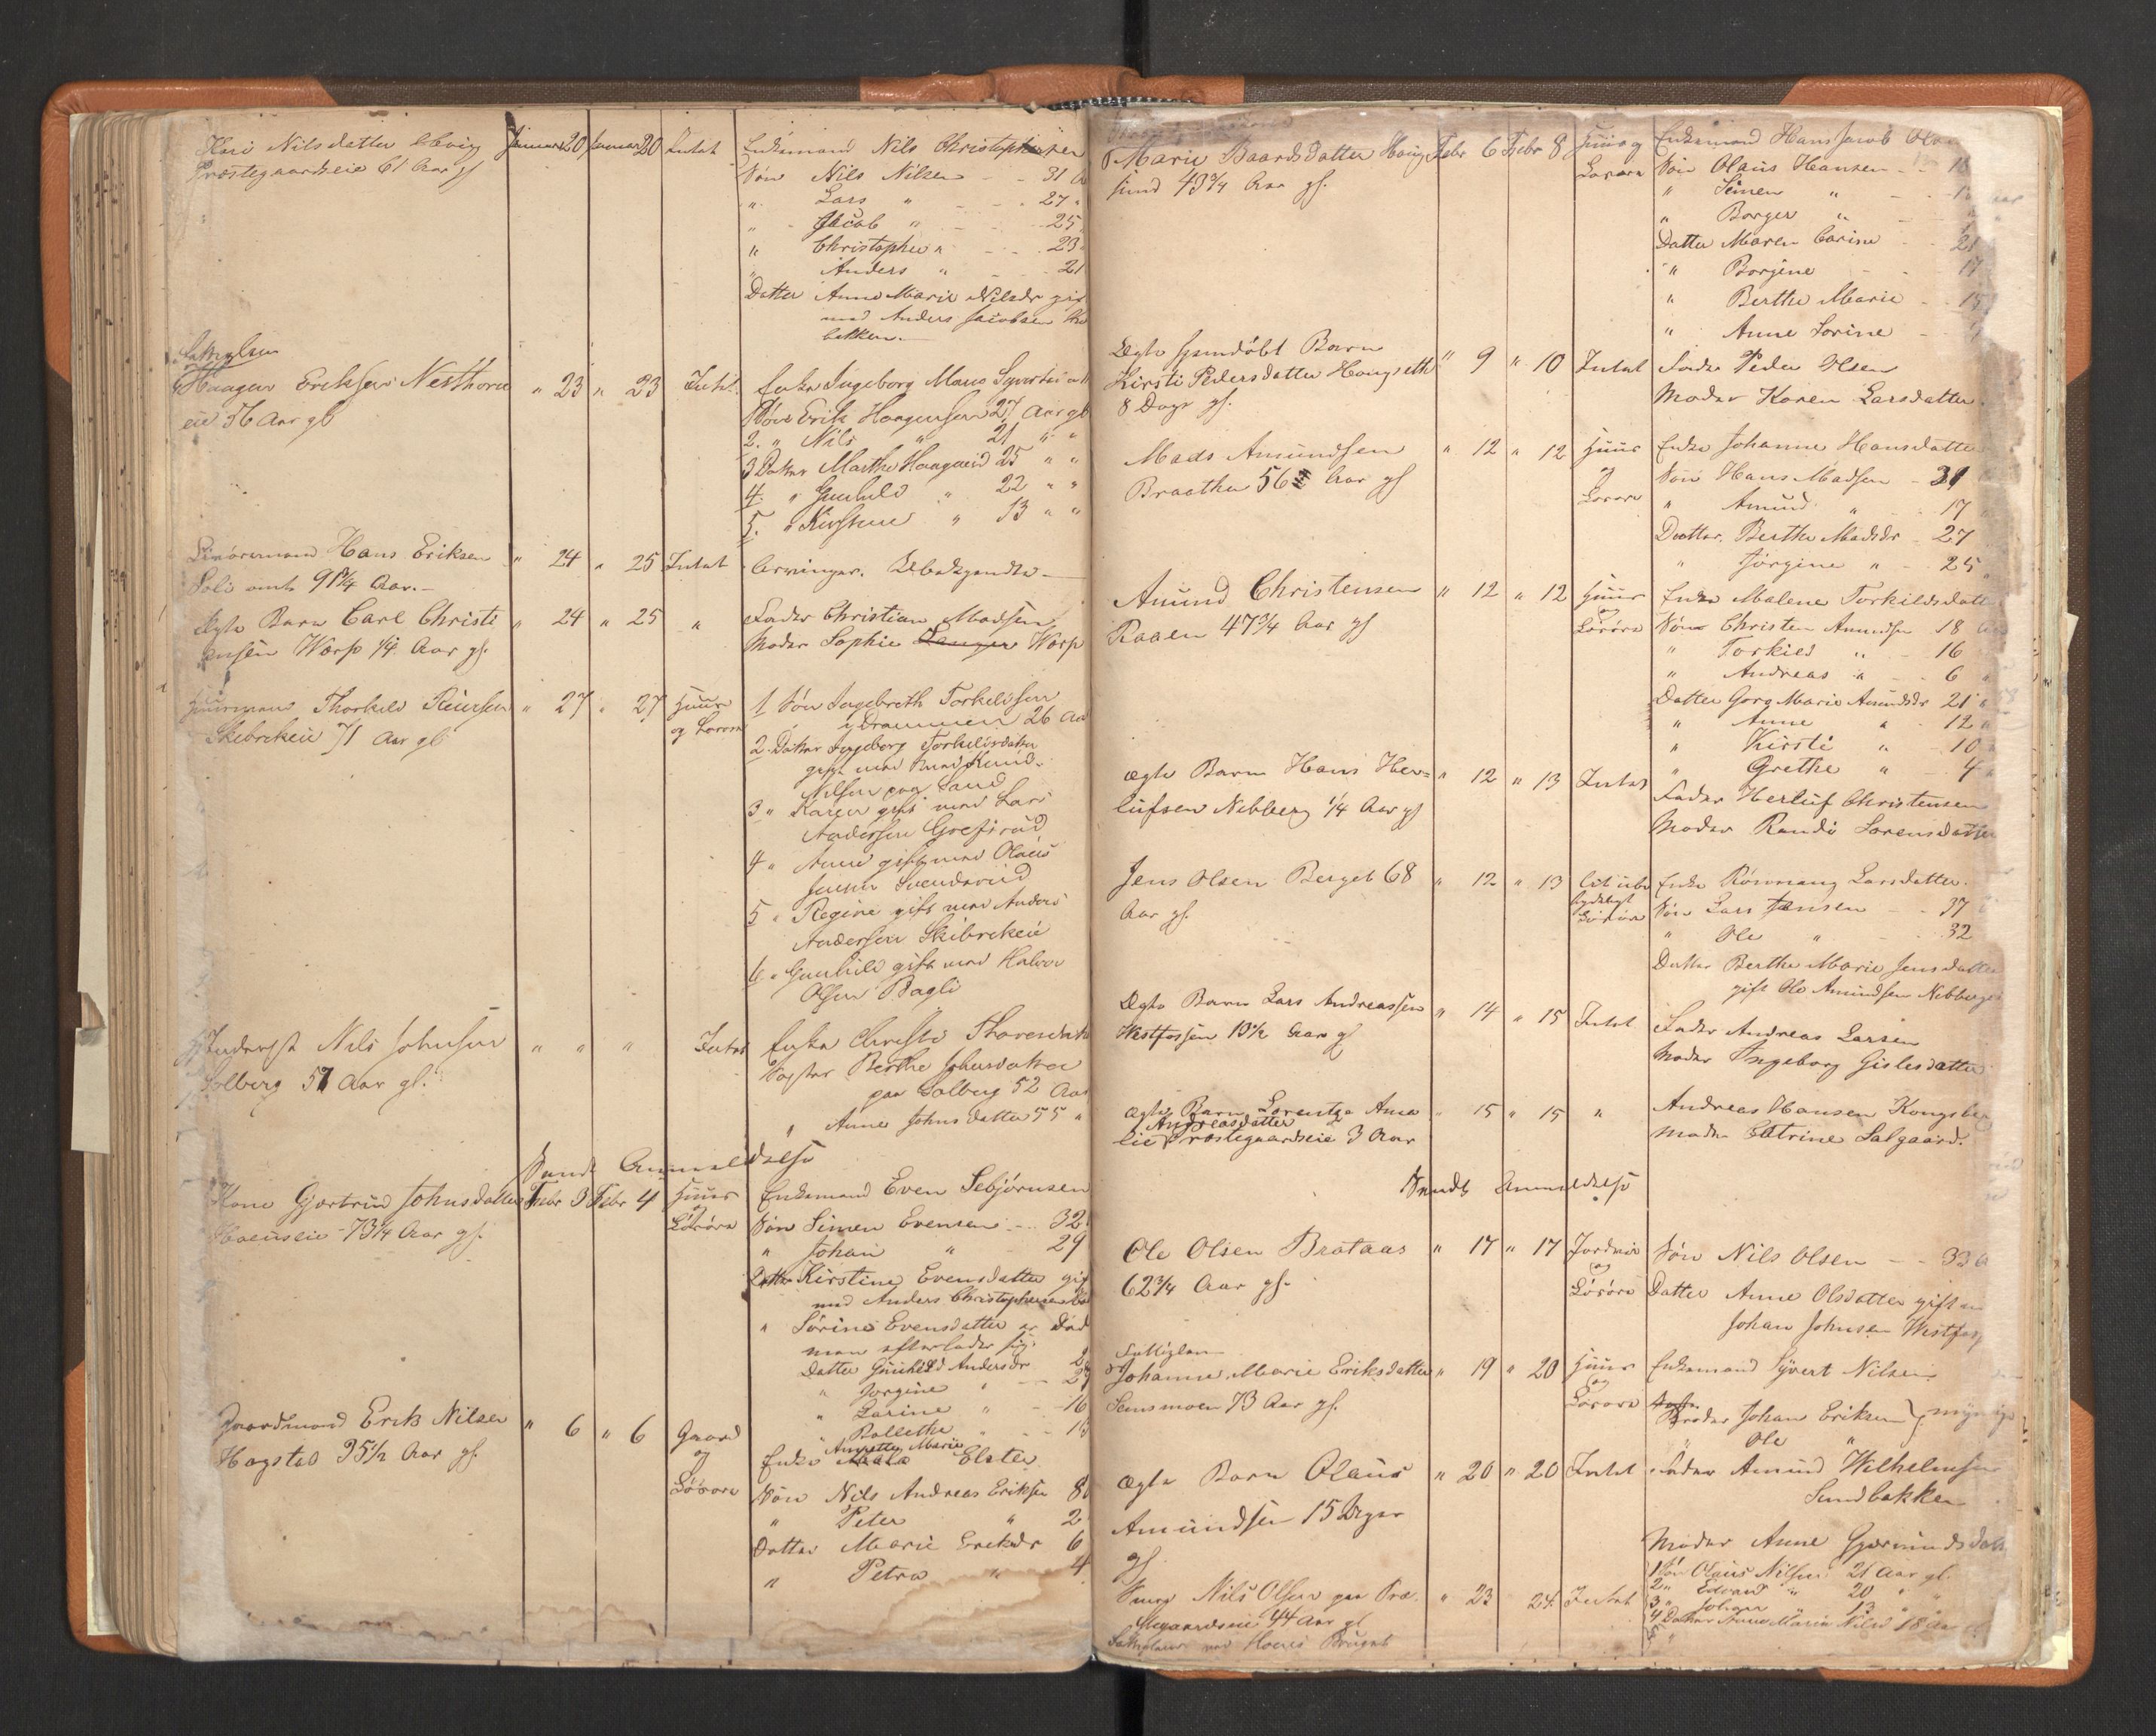 Nilsdatter Januar 20 Januar 20 Intet Enkemand Nils Christophersen
Præstegaardseie 61 Aar gl
Søn Nils Nilsen - - 31
" Lars " - - 27 "
" Jacob " - - 25
" Christopher " - - 23
" Anders " - - 21
Datter Anne Marie Nilsdr gift
med Anders Jacobsen
bakken.
Haagen Eriksen Nesthorn " 23 " 23 Intet Enke Ingeborg Marie
eie 56 Aar gl
1 Søn Erik Haagensen 27 Aar gl
2. " Nils " 21 " "
3 Datter Marthe Haagensd 25 " "
4. " Gunhild " 22 " "
5. " Kirstine " 13 " "
Hans Eriksen " 24 " 25 Intet Arvinger Ubekjendte
91 1/4 Aar.
Ægte Barn Carl Christi " 24 " 25 " Fader Christian Madsen
ansen Worp 1/4 Aar gl.
Moder Sophie Worp
Huusmand Thorkild Reiersen " 27 " 27 Huus
Skibrekeie 71 Aar gl
og Løsøre
1 Søn Ingebreth Torkildsen
i Drammen 26 Aar
2 Datter Ingeborg Torkildsdatter
gift med Knud
Nilsen paa Sand
3 " Karen gift med Lars
Andersen Grefsrud
4 " Anne gift med Olaus
Jensen Svendsrud
5 " Regine gift med Anders
Andersen Skibrekeie
6 " Gunhild gift med Halvor
Olsen Bagli
Inderst Nils Johnsen " " " Intet Enke Thorendatter
Solberg 57 Aar gl.
Søster Berthe Johnsdatter
paa Solberg 52 Aar
" Anne Johnsdatter 55 "
Sendt Anmeldelse
Kone Gjertrud Johnsdatter Febr 3 Febr 4 Huus
og
Løsøre
Hoenseie 73 1/4 Aar gl.
Enkemand Even Sebjørnsen
Søn Simen Evensen - - 32
" Johan " 29
Datter Kirstine Evensdatter gift
med Anders Christophersen
" Sørine Evensdatter er Død
men efterlader sig
Datter Gunhild Andersdr
" Jørgine " - -
" Larine " - - 16
" Bollethe - - 13
Gaardmand Erik Nilsen " 6 " 6 Gaard
og
Løsøre
Hagstad 35 1/2 Aar gl.
Annette Marie
Enke Elster
Søn Nils Andreas Eriksen 8
" Peter " 2
Datter Marie Eriksdr 6
" Petra " 4
Marie Baardsdatter Houg Febr 6 Febr 8 Huus og
Løsøre
sund 43 3/4 Aar gl.
Enkemand Hans Jacob
Søn Olaus Hansen - -
" Simen " -
" Borger "
Datter Maren Carine - - 21
" Borgine - - 17
" Berthe Marie - 15
" Anne Sorine -
Ægte hjemdøbt Barn
Kirsti Pedersdatter Hougseth " 9 " 10 Intet
8 Dage gl.
Fader Peder Olsen
Moder Karen Larsdatter.
Mads Amundsen " 12 " 12 Huus
og
Løsøre
Braathen 56 Aar gl
Enke Johanne Hansdatter
Søn Hans Madsen - 31
" Amund " - 17
Datter Berthe Madsdr - 27
" Jørgine " - 25
Amund Christensen " 12 " 12 Huus
og
Løsøre
Raaen 47 3/4 Aar gl
Enke Malene Torkildsdatter
Søn Christen Amundsen 18
" Torkild " - 16
" Andreas " - 6
Datter Gorg. Marie Amundsdr 21 "
" Anne " 12 "
" Kirsti " - 10
" Grethe " - 4 "
Ægte Barn Hans Her- " 12 " 13 Intet
lufsen Nebberg 1/4 Aar gl
Fader Herluf Christensen
Moder Randi Sorensdatter
Jens Olsen Berget 68 " 12 " 13
Løsøre
Aar gl.
Enke Larsdatter.
Søn Lars Jensen - - 37
" Ole " - - 32
Datter Berthe Marie Jensdatter
gift Ole Amundsen Nebberg
Ægte Barn Lars Andreassen " 14 " 15 Intet
Westfossen 10 1/2 Aar gl
Fader Andreas Larsen
Moder Ingeborg Gislesdatter
Ægte Barn Lorentze Ama " 15 " 15 "
Andreasdatter
lie Præstegaardseie 3 Aar
Andreas Hansen Kongsberg
Moder Salgaard.
Sendt Anmeldelse
Ole Olsen Brataas " 17 " 17
og
Løsøre
62 3/4 Aar gl.
Søn Nils Olsen - - 33
Datter Anne Olsdatter gift m
Johan Johnsen Westfos
Fattiglem
Johanne Marie Eriksdatter " 19 " 20 Huus
og
Løsøre
Semsmoen 73 Aar gl.
Enkemand Syvert Nilsen
Broder Johan Eriksen } myndige
" Ole "
Ægte Barn Olaus " 20 " 20 Intet
Amundsen 15 Dage
gl
Fader Amund Wilhelmsen
Sundbakken
Moder Anne
Nils Olsen paa Præ- " 23 24 Intet
stegaardseie 44 Aar gl
1 Søn Olaus Nilsen 21 Aar gl.
2 " Edvard " 20 "
3 " Johan " 13 "
4 Datter Anne Marie Nilsd 18 Aar